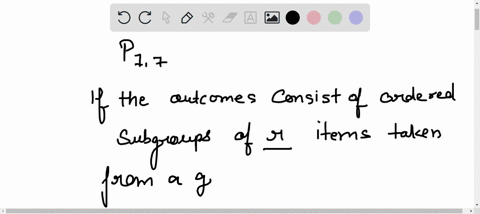 P7,7
If the outcomes consist of ordered
subgroups of r items taken
from a g